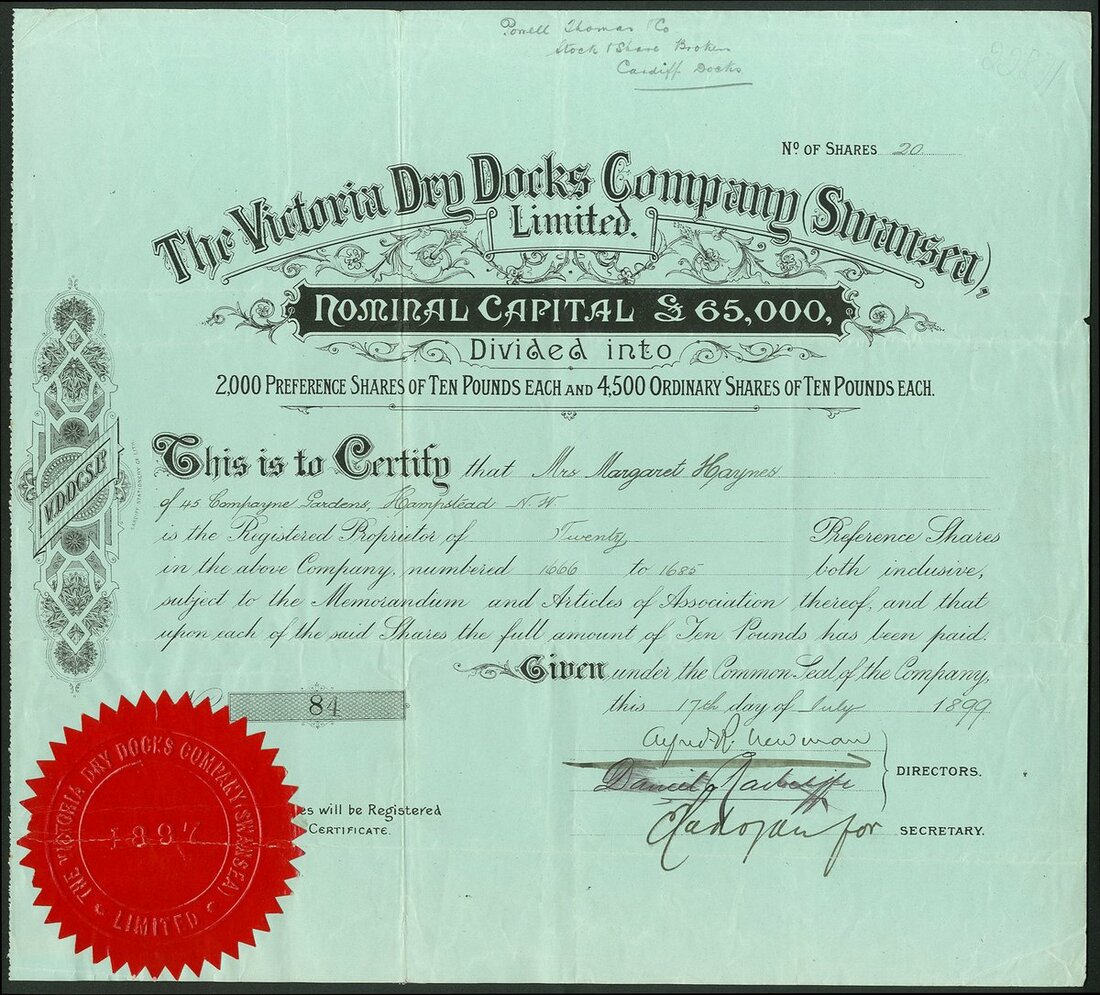 Powell Thomas & Co
Stock & Share Brokers
Cardiff Docks
No OF SHARES 20
The Victoria Dry Docks Company (Swansea),
Limited.
NOMINAL CAPITAL £65,000,
Divided into
2,000 PREFERENCE SHARES OF TEN POUNDS EACH AND 4,500 ORDINARY SHARES OF TEN POUNDS EACH.
V.D.D.C.S.Ld
This is to Certify that Mrs Margaret Haynes
of 45 Compayne Gardens, Hampstead N.W
is the Registered Proprietor of Twenty Preference Shares
in the above Company, numbered 1666 to 1685 both inclusive,
subject to the Memorandum and Articles of Association thereof, and that
upon each of the said Shares the full amount of Ten Pounds has been paid.
Given under the Common Seal of the Company,
this 17th day of July 1899
84
Alfred R. Newman
Daniel Radcliffe
DIRECTORS.
for SECRETARY.
es will be Registered
CERTIFICATE.
THE VICTORIA DRY DOCKS COMPANY (SWANSEA)
1897
LIMITED